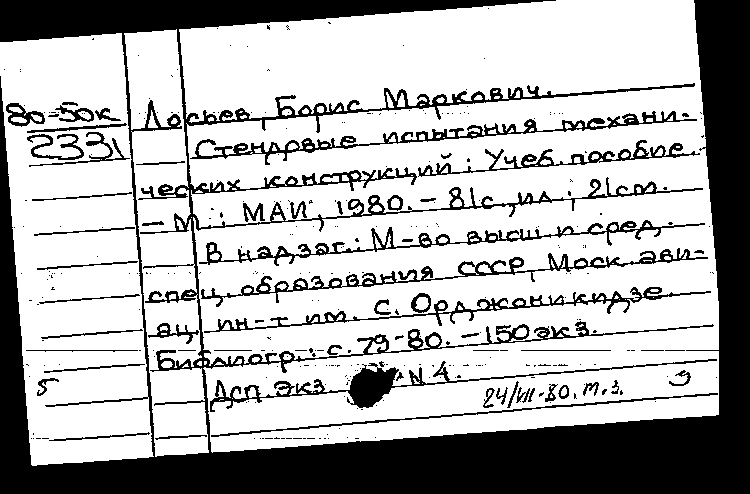 80-50к
2331
Лосьев, Борис Маркович.
Стендовые испытания механи-
ческих конструкций: Учеб. пособие.
— М.: МАИ, 1980. – 81с., ил; 21см.
В надзаг.: М-во высш и сред.
спец. образования СССР, Моск. ави-
ац. ин-т им. С. Орджоникидзе.
Библиогр.: с. 79-80. – 150 экз.
Дсп. экз N 4.
5
24/VII-80. т. з.